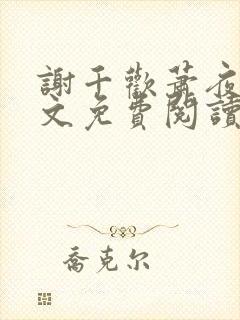 謝千歡蕭夜
文免費閱讀
喬克尔